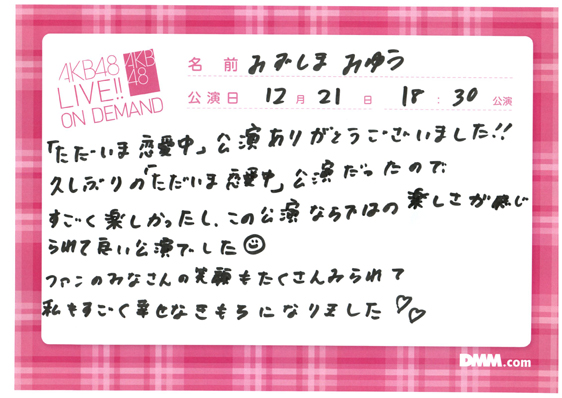 AKB48
LIVE!!
ON DEMAND
AKB
48
名前 みずしま みゆう
公演日 12月21日 18:30公演
「ただいま恋愛中」公演ありがとうございました!!
久しぶりの「ただいま恋愛中」公演だったので
すごく楽しかったし、この公演ならではの楽しさが感じ
られて良い公演でした☺
ファンのみなさんの笑顔もたくさんみられて
私もすごく幸せなきもちになりました♡♡
DMM.com